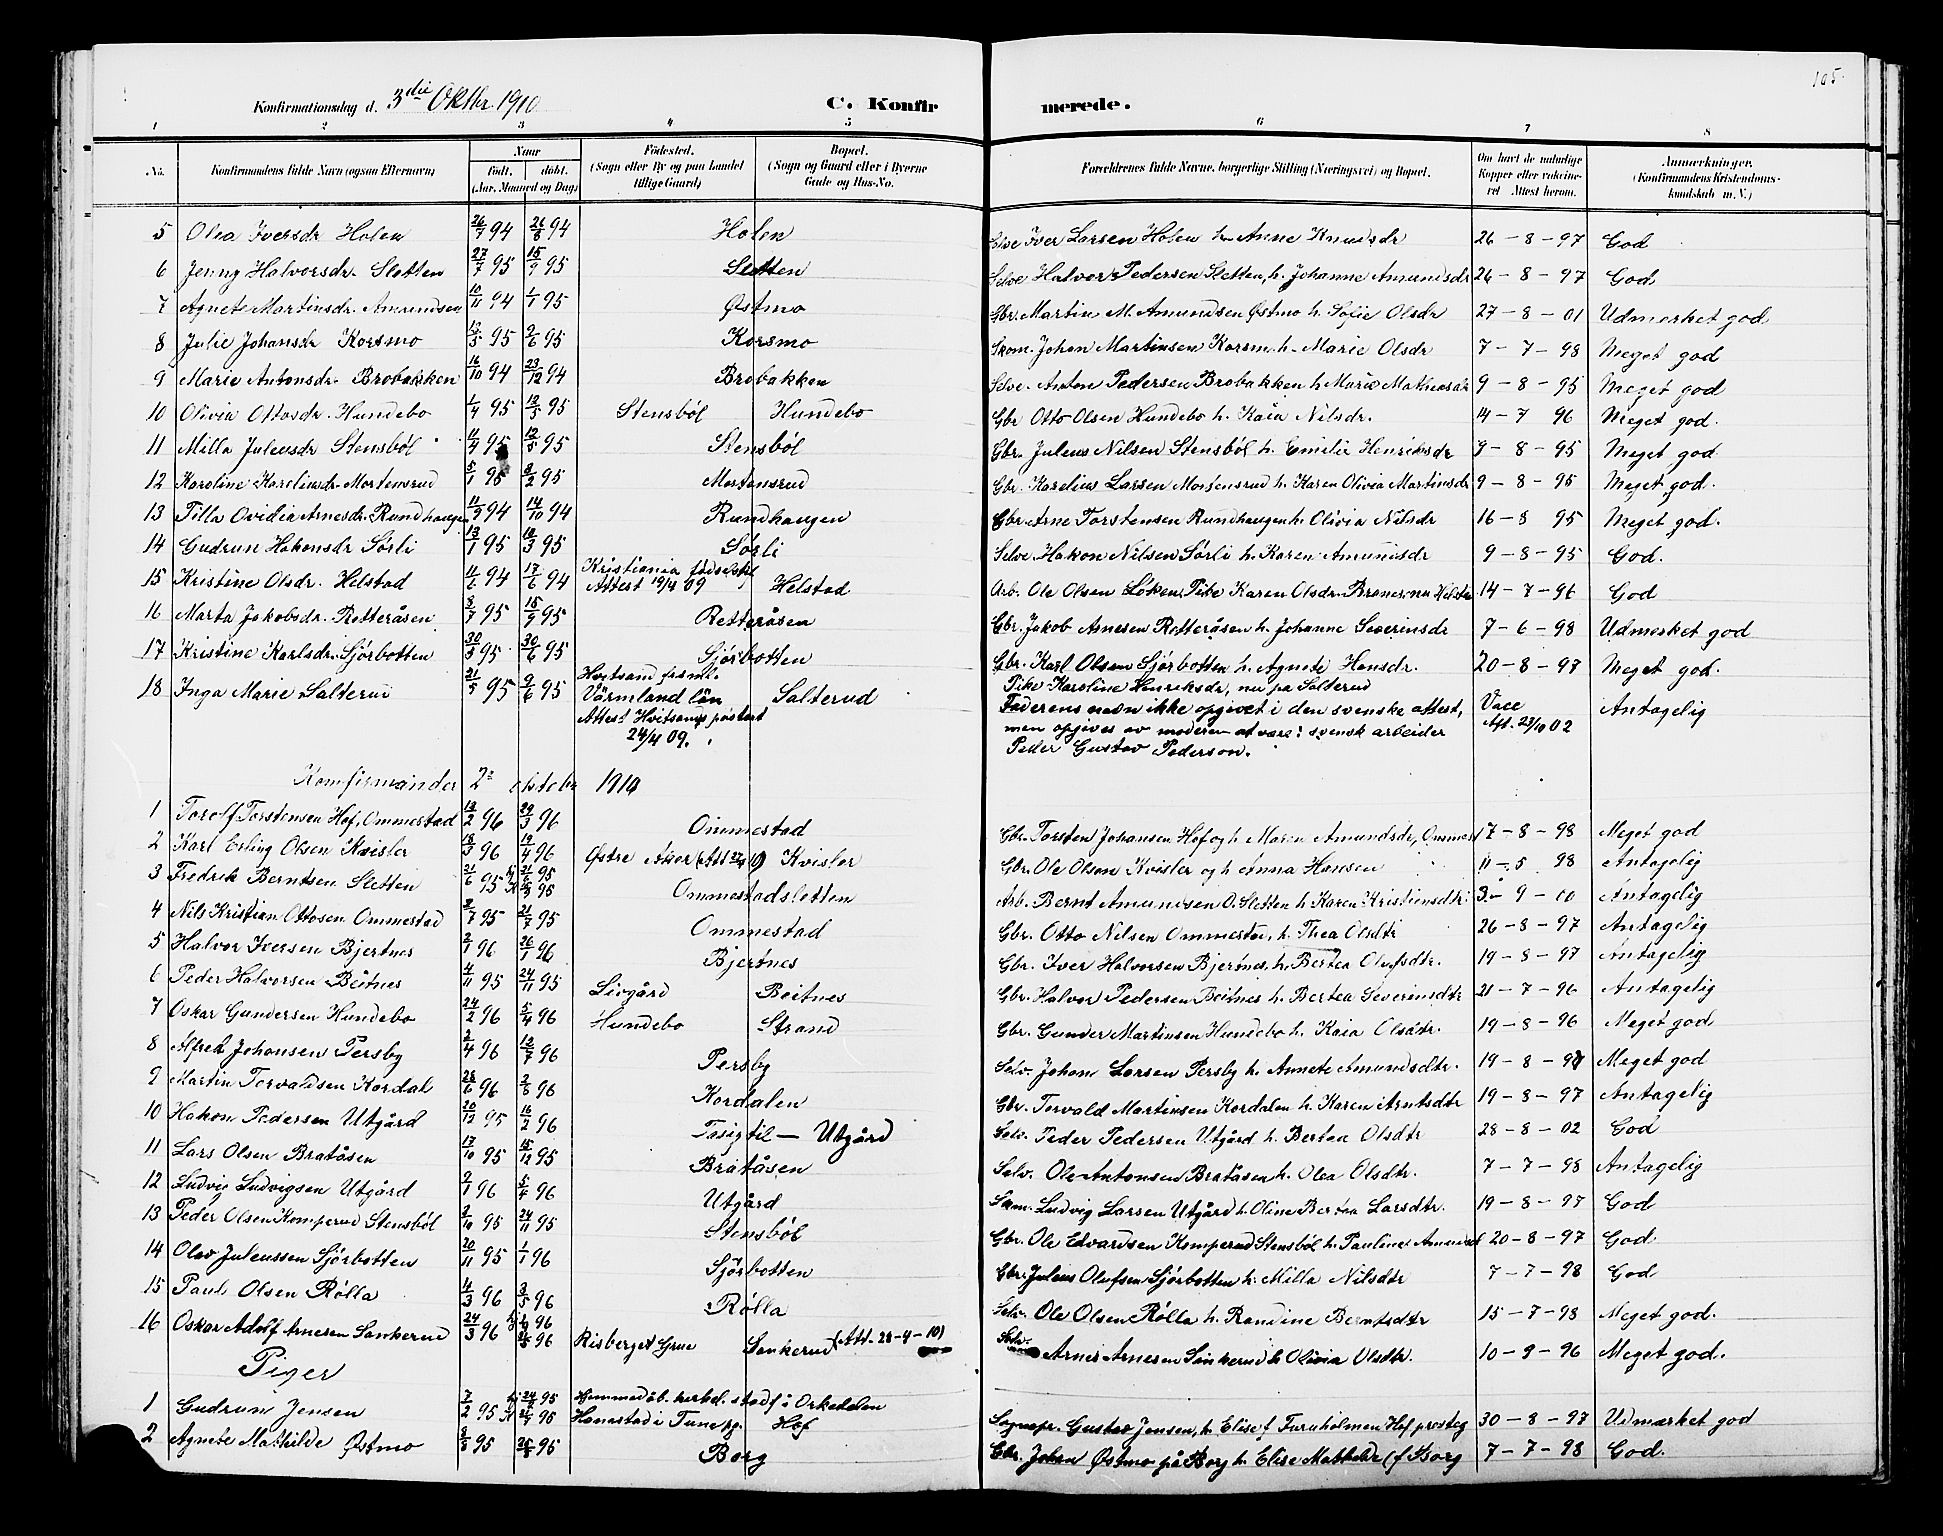 105.
Konfirmationsdag d. 3die Oktbr. 1910
C. Konfirmerede.
1 2 3 4 5 6 7 8
No. Konfirmandens fulde Navn (ogsaa Efternavn) Naar født. døbt. (Aar, Maaned og Dag) Fødested. (Sogn eller By og paa Landet tillige Gaard) Bopæl. (Sogn og Gaard eller i Byerne Gade og Hus-No. Forældrenes fulde Navne, borgerlige Stilling (Næringsvei) og Bopæl. Om havt de naturlige Kopper eller vaccineret Attest herom. Anmærkninger. (Konfirmandens Kristendomskundskab m. V.)
5 Olea Iversdr Holen 26/7 94 26/8 94 Holen Selve Iver Larsen Holen h. Anne Knudsdr 26-8-97 God
6 Jenny Halvorsdr. Sletten 27/7 95 15/9 95 Sletten Selve Halvor Pedersen Sletten, h. Johanne Amundsdr 26-8-97 God
7 Agnete Martinsdr. Amundsen 10/11 94 1/1 95 Østmo Gbr. Martin M. Amundsen Østmo h. Sofie Olsdr 27-8-01 Udmerket god
8 Julie Johansdr Korsmo 95 2/6 95 Korsmo Skom. Johan Martinsen Korsm. h. Marie Olsdr 7-7-98 Meget god
9 Marie Antonsdr. Brobakken 16/10 94 23/12 94 Brobakken Selve. Anton Pedersen Brobakken h Marie Mathiasdr 9-8-95 Meget god
10 Olivia Ottosdr. Hundebo 1/4 95 12/5 95 Stensböl Hundebo Gbr Otto Olsen Hundebo h. Kaia Nilsdr. 14-7 96 Meget god.
11 Milla Juleusdr Stensböl 11/4 95 12/5 95 Stensböl Gbr. Juleus Nilsen Stensböl h. Emilie Henriksdr 9-8-95 Meget god
12 Karoline Kareliusdr. Mortensrud 5/1 95 3/2 95 Mortensrud Gbr. Karelius Larsen Mortensrud h. Karen Olivia Martinsdr 9-8-95 Meget god.
13 Tilla Ovidia Arnesdr. Rundhaugen 94 14/10 94 Rundhaugen Gbr. Arne Torstensen Rundhaugen h. Olivia Nilsdr 16-8 95 Meget god.
14 Gudrun Hakonsdr Sörli 13/1 95 10/3 95 Sörli Selve Hakon Nilsen Sörli h. Karen Amundsdr 9-8-95 God.
15 Kristine Olsdr. Helstad 11/6 94 17/6 94 Kristiania fødselsstif. Attest 19/4 09 Helstad Arb. Ole Olsen Löken, Pike Karen Olsdr. nu Helstad 14-7-96 God
16 Marta Jakobsdr. Rotteråsen 8/7 95 15/9 95 Rotteråsen Gbr. Jakob Arnesen Rotteråsen h. Johanne Severinsdr 7-6-98 Udmerket god
17 Kristine Karlsdr. Sjörbotten 30/5 95 30/6 95 Sjörbotten Gbr. Karl Olsen Sjörbotten h. Agnete Hansdr. 20-8-97 Meget god.
18 Inga Marie Salterud 21/5 95 9/6 95 Hvitsand försml. Värmland län Attest Hvitsands pastorat 24/4 09. Salterud Pike Karoline Henriksdr, nu på Salterud
Faderens navn ikke opgivet i den svenske attest, men opgives av moderen at være: svensk arbeider Peder Gustav Pederson. Vacc Aft. 23/10 02 Antagelig
Konfirmander 2n oktober 1910
1 Torolf Torstensen Hof, Ommestad 13/2 96 29/3 96 Ommestad Gbr. Torsten Johansen Hof og h Maren Amundsdr, Ommest 7-8-98 Meget god
2 Karl Erling Olsen Kvisler 18/3 96 19/4 96 Østre Aker (Att 10) Kvisler Gbr. Ole Olsen Kvisler og h Anna Hansen 11-5 98 Antagelig
3 Fredrik Berntsen Sletten 21/6 95 95 95 Ommestadsletten Arb. Bernt Amundsen O. Sletten h Karen Kristiansdtr. 3-9-00 Antagelig
4 Nils Kristian Ottosen Ommestad 2/7 95 21/7 95 Ommestad Gbr. Otto Nilsen Ommestad, h. Thea Olsdtr 26-8-97 Antagelig
5 Halvor Iversen Bjertnes 2/1 96 26/1 96 Bjertnes Gbr. Iver Halvorsen Bjertnes, h. Bertea Olufsdtr. 19-8-97 Antagelig
6 Peder Halvorsen Beitnes 4/11 95 24/11 95 Livgård Beitnes Gbr. Halvor Pedersen Beitnes h. Bertea Severinsdtr 21-7-96 Antagelig
7 Oskar Gundersen Hundebo 24/2 96 5/4 96 Hundebo Strand Gbr. Gunder Martinsen Hundebo h. Kaia Olsdtr. 19-8-96 Meget god
8 Alfred Johansen Persby 2/4 96 96 Persby Selv. Johan Larsen Persby h. Annete Amundsdtr. 19-8-97 Meget god
9 Martin Torvaldsen Kordal 28/6 96 96 Kordalen Gbr. Torvald Martinsen Kordalen h. Karen Arntsdtr 19-8-97 Antagelig
10 Hakon Pedersen Utgård 20/12 95 16/2 96 Utgård Selv. Peder Pedersen Utgård h. Bertea Olsdtr 28-8-02 God
11 Lars Olsen Bratåsen 17/10 95 15/12 95 Bratåsen Selv. Ole Antonsen Bratåsen h. Olea Olsdtr. 7-7-98 Antagelig
12 Ludvig Ludvigsen Utgård 2/1 96 5/4 96 Utgård Ludvig Larsen Utgård h. Oline Bertea Larsdtr. 19-8-97 God
13 Peder Olsen Komperud Stensböl 2/10 95 24/11 95 Stensböl Gbr. Ole Edvardsen Komperud Stensböl h. Pauline Amundsd 20-8-97 God
14 Olav Juleussen Sjörbotten 20/11 95 1/1 96 Sjörbotten Gbr. Juleus Olufsen Sjörbotten h. Milla Nilsdtr 7-7-98 God
15 Paul Olsen Rölla 4/3 96 3/5 96 Rölla Selv. Ole Olsen Rölla h. Randine Berntsdtr 15-7-98 Meget god.
16 Oskar Adolf Arnesen Sankerud 24/3 96 96 96 Risberget Grue Sankerud (Att. 28-4-10) Selv. Arne Arnesen Sankerud h Olivia Olsdtr. 10-9-96 Meget god.
Piger
1 Gudrun Jensen 7/2 95 95 95 Hjemmedöb. bekr. stadf. i Orkedalen Hannestad i Tune pg. Hof Sognepr. Gustav Jensen, h. Elise f Furuholmen Hof prestegj 30-8-97 Udmærket god
2 Agnete Mathilde Østmo 95 95 Borg Gbr. Johan Østmo på Borg h. Elise Mathilde (f Borg 7-7-98 God.